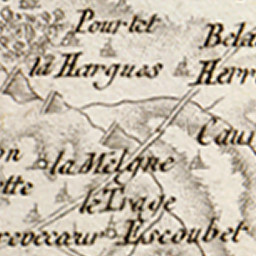 Pourtet
Bela
la Hargues
Herr
Cau
on
la Mêlque
ette
le Trage
revecœur
Escoubet